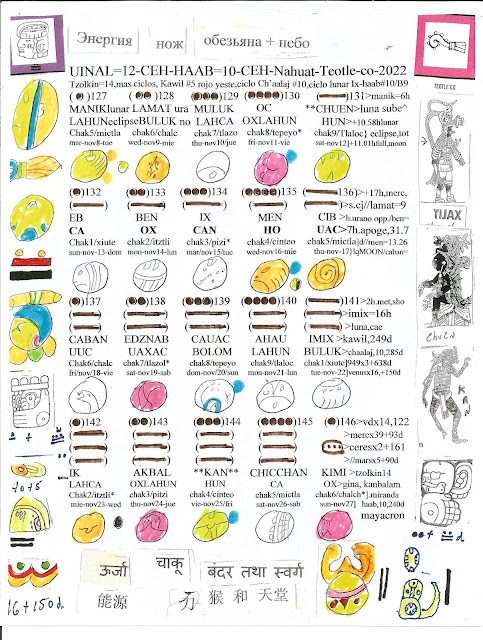 Энергия нож обезьяна + небо
UINAL=12-CEH-HAAB=10-CEH-Nahuat-Teotle-co-2022
Tzolkin=14,mas ciclos, Kawil #5 rojo yeste,ciclo Ch'aalaj #10,ciclo lunar Ix#19/B9
127 128 129 130 131>manik=6h
MANIKlunar LAMAT ura MULUK OC **CHUEN>luna sube^
LAHUNeclipseBULUK no LAHCA OXLAHUN HUN>+10,58hlunar
Chak5/mictla chak6/chalc chak7/tlazo chak8/tepeyo* chak9/Tlaloc} eclipse,tot
mar-nov8-tue wed-nov9-mie thu-nov10/jue fri-nov11-vie sat-nov12}+11.01hfull,moon
TEOTL'CO
)132 )133 )134 )135 136)>+17h,merc,
>s.cj//lamat=9
EB BEN IX MEN CIB >h.urano opp./ben=
TIJAX
CA OX CAN HO UAC>7h.apoge,31.7
Chak1/xiute chak2/itztli chak3/pizi* chak4/cinteo chak5/mictla}d//men=13.26
sun-nov13-dom mon-nov14-lun mar/nov15/tue wed-nov16-mie thu-nov-17}lqMOON/caban=
)137 )138 )139 )140 )141>2h.met,sho
>imix=16h
>luna,cae
CABAN EDZNAB CAUAC AHAU IMIX >kawil,249d
UUC UAXAC BOLOM LAHUN BULUK>chaalaj,10,285d
Chak6/chalc chak7/tlazol* chak8/tepeyo chak9/tlaloc chak1/xiute}949x3+638d
fri/nov/18-vie sat-nov19-sab dom-nov/20/sun mon-nov21-lun tue-nov-22}venusx16,+150d
)142 )143 )144 )145 )146>vdx14,122
>mercx39+93d
>ceresx2+161
>//marsx5+90d
IK AKBAL **KAN** CHICCHAN KIMI >tzolkin14
LAHCA OXLAHUN HUN CA OX>gina, kanbalam
Chak2/itztli* chak3/pitzi chak4/cinteo chak5/mictla chak6/chalch*].miranda
mie-nov23-wed thu-nov24-jue vie-nov25/fri sat-nov26-sab sun-nov27] haab,10,240d
mayacron
ऊर्जा चाकू बंदर तथा स्वर्ग
能源 刀 猴 和 天堂
16+150d